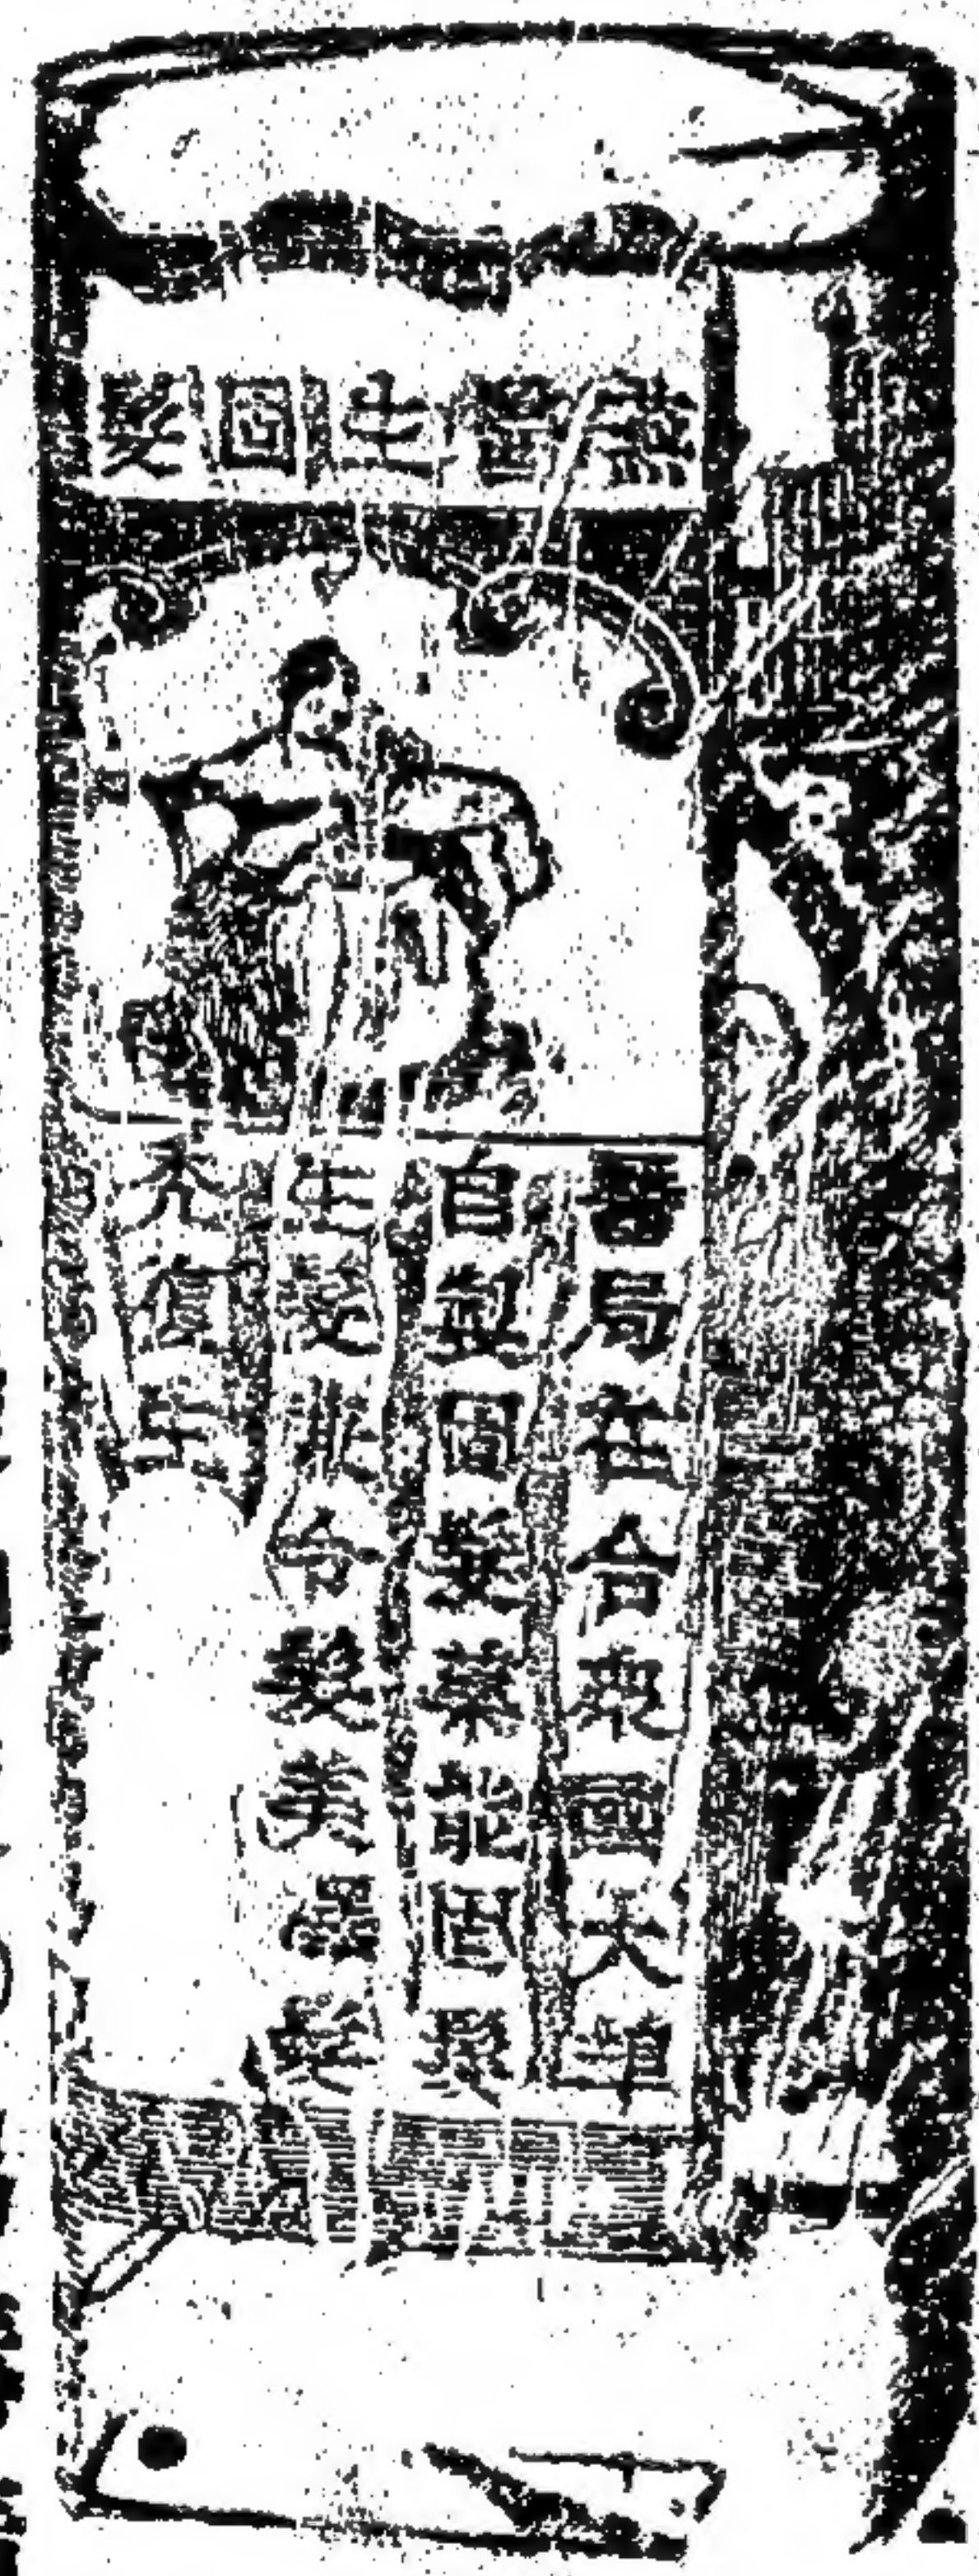 醫生固髮
醫局在合衆國大埠
自製固髮藥能固髮
生髮令髮美雖髮
禿復生